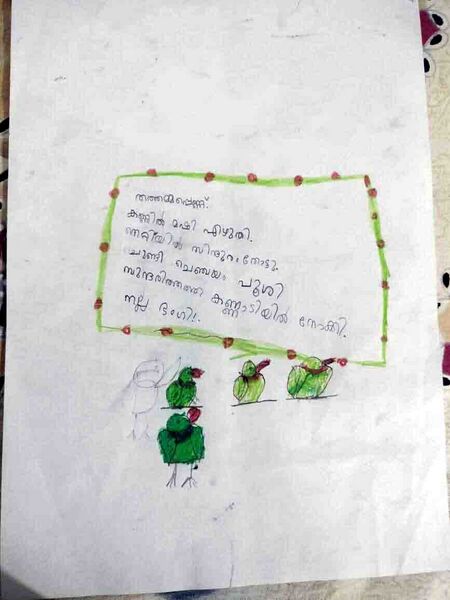 തത്തമ്മപ്പെണ്ണ്
കണ്ണിൽ മഷി എഴുതി.
നെറ്റിയിൽ സിന്ദൂരം തോട്ടു.
ചുണ്ടി ചെഞ്ചായം പൂശി
സുന്ദരിത്തത്ത കണ്ണാടിയിൽ നോക്കി.
നല്ല ഭംഗി!.